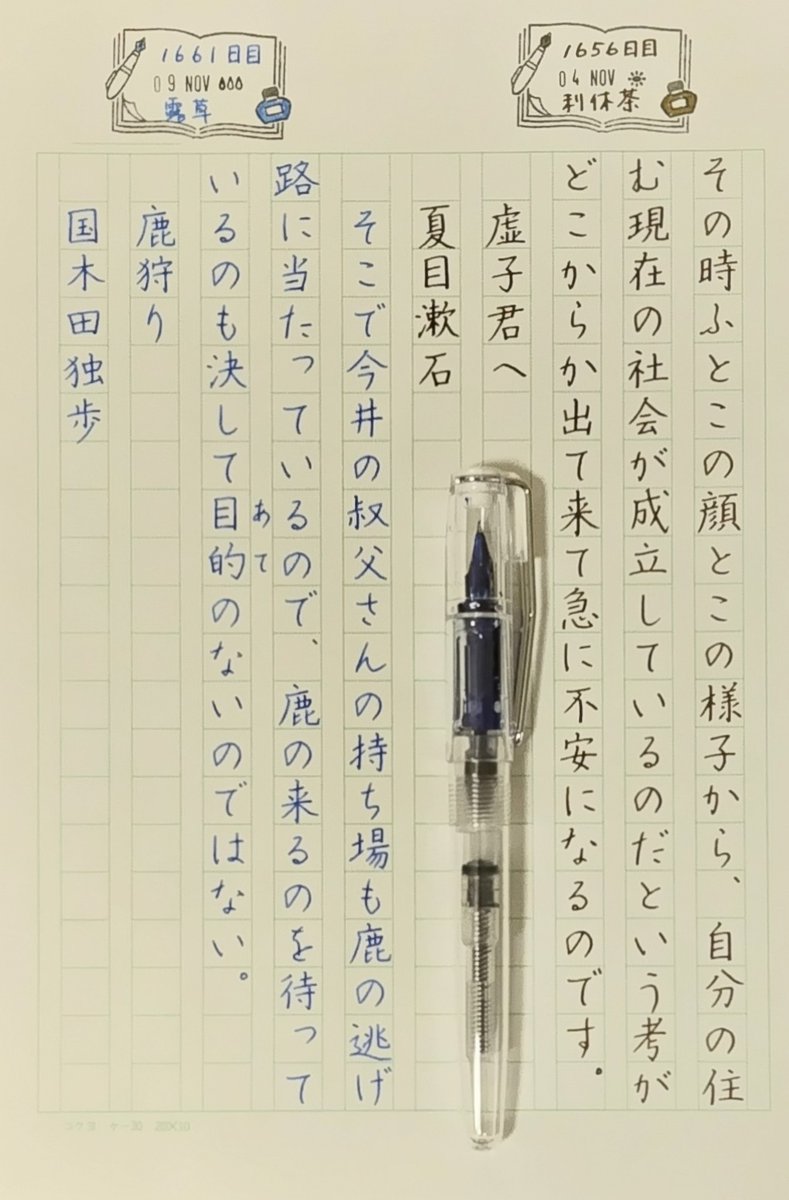 1656日目
04 NOV
利休茶
その時ふとこの顔とこの様子から、自分の住
む現在の社会が成立しているのだという考が
どこからか出て来て急に不安になるのです。
虚子君へ
夏目漱石
1661日目
09 NOV
露草
そこで今井の叔父さんの持ち場も鹿の逃げ
路に当たっているので、鹿の来るのを待って
いるのも決して目的のないのではない。
あて
鹿狩り
国木田独歩
コクヨ ケー30 20×10